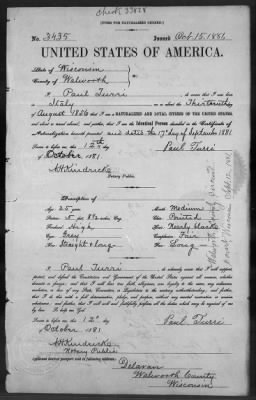 check 33828
(FORM FOR NATURALIZED CITIZEN.)
No. 3435 Issued Oct 15, 1881
UNITED STATES OF AMERICA.
State of Wisconsin
County of Walworth
I Paul Turri do swear that I was born
in Italy on or about the Thirteenth
August 1856 that I am a NATURALIZED AND LOYAL CITIZEN OF THE UNITED STATES,
and about to travel abroad; and further, that I am the Identical Person described in the Certificate of
Naturalization herewith presented said dated the 17th day of September 1881
Sworn to before me this 12th Paul Turri
October 1881
Notary Public.
Description of
Age: 25 years Mouth: Medium
Stature: 5 feet 8½ inches Eng. Chin: Pointed
Forehead: High Hair: Nearly black
Eyes: Grey Complexion: Fair
Nose: Straight & long Face: Long
I Paul Turri do solemnly swear that I will support,
protect, and defend the Constitution and Government of the United States against all enemies, whether
domestic or foreign; and that I will bear true faith, allegiance, and loyalty to the same, any ordinance,
resolution or law of any State, Convention, or Legislature to the contrary notwithstanding; and further,
that I do this with a full determination, pledge, and purpose, without any mental reservation or evasion
whatsoever; and further, that I will well and faithfully perform all the duties which may be required of me
by law: So help me God.
Sworn to before me this 12" day Paul Turri
October 1881
Notary Public
Applicant desires passport sent to following address:
Delavan
Walworth County
Wisconsin